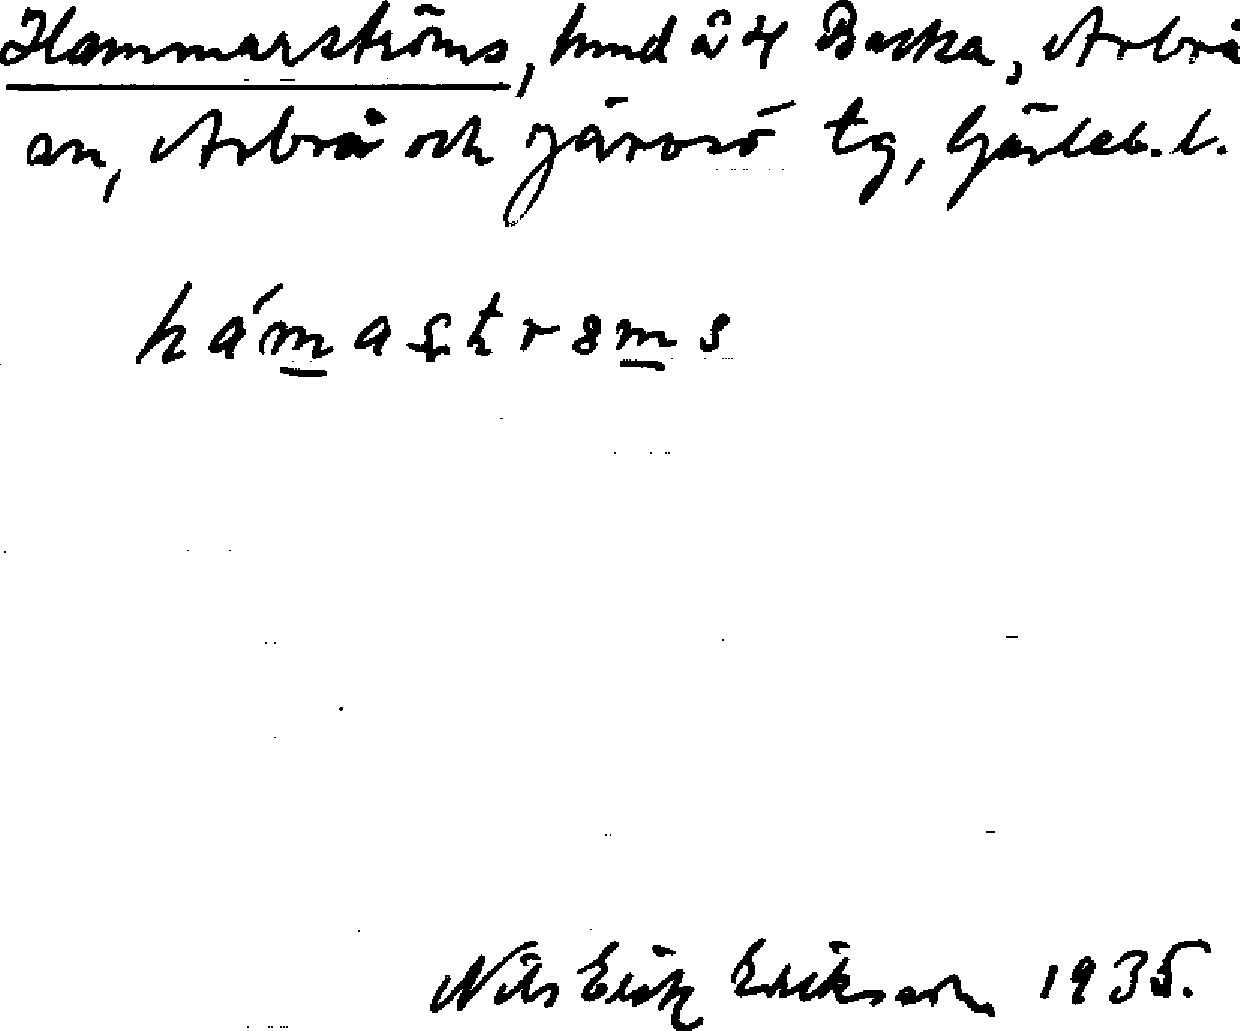 Hammarströms, hmd å 4 Backa, Arbrå
sn, Arbrå och Järvsö tg, Gävleb. l.
hámaströms
Nils Erik Eriksson 1935.